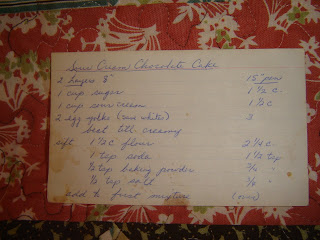 Sour Cream Chocolate Cake
2 Layers 8" 15" pan
1 cup sugar 1 1/2 c.
1 cup sour cream 1 1/2 c
2 egg yolks (save whites) 3
beat till creamy
sift 1 1/2 c flour 2 1/4 c.
1 tsp soda 1 1/2 tsp
1/2 tsp baking powder 3/4 "
tsp salt "
add to first mixture (over)